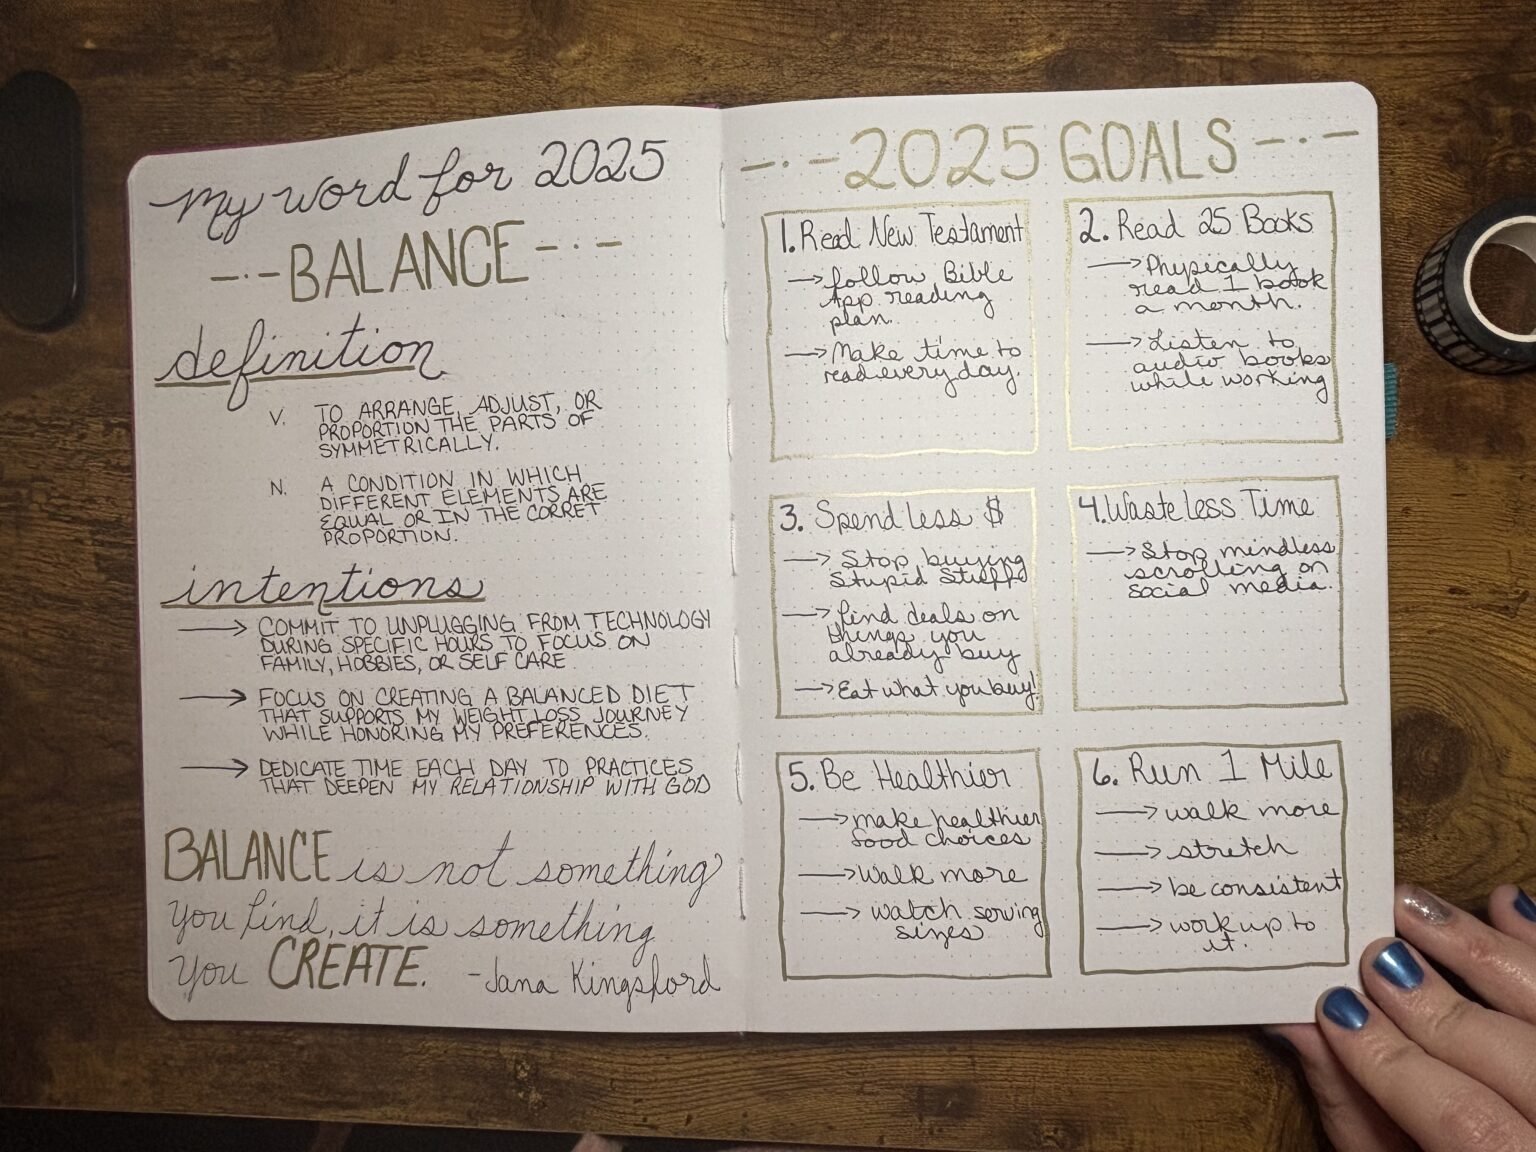 My word for 2025
--·--BALANCE--·--
definition
V. TO ARRANGE, ADJUST, OR
PROPORTION THE PARTS OF
SYMMETRICALLY.
N. A CONDITION IN WHICH
DIFFERENT ELEMENTS ARE
EQUAL OR IN THE CORRET
PROPORTION.
intentions
→ COMMIT TO UNPLUGGING FROM TECHNOLOGY
DURING SPECIFIC HOURS TO FOCUS ON
FAMILY, HOBBIES, OR SELF CARE
→ FOCUS ON CREATING A BALANCED DIET
THAT SUPPORTS MY WEIGHT LOSS JOURNEY
WHILE HONORING MY PREFERENCES.
→ DEDICATE TIME EACH DAY TO PRACTICES
THAT DEEPEN MY RELATIONSHIP WITH GOD
BALANCE is not something
you find, it is something
you CREATE. -Jana Kingsford
--·--2025 GOALS--·--
1. Read New Testament
→ follow Bible
App reading
plan.
→ Make time to
read every day.
2. Read 25 Books
→ Physically
read 1 book
a month.
→ Listen to
audio books
while working
3. Spend less $
→ Stop buying
Stupid Stuff
→ find deals on
things you
already buy
→ Eat what you buy!
4. Waste less Time
→ Stop mindless
scrolling on
social media.
5. Be Healthier
→ make healthier
food choices
→ walk more
→ watch serving
sizes
6. Run 1 Mile
→ walk more
→ stretch
→ be consistent
→ work up to
it.